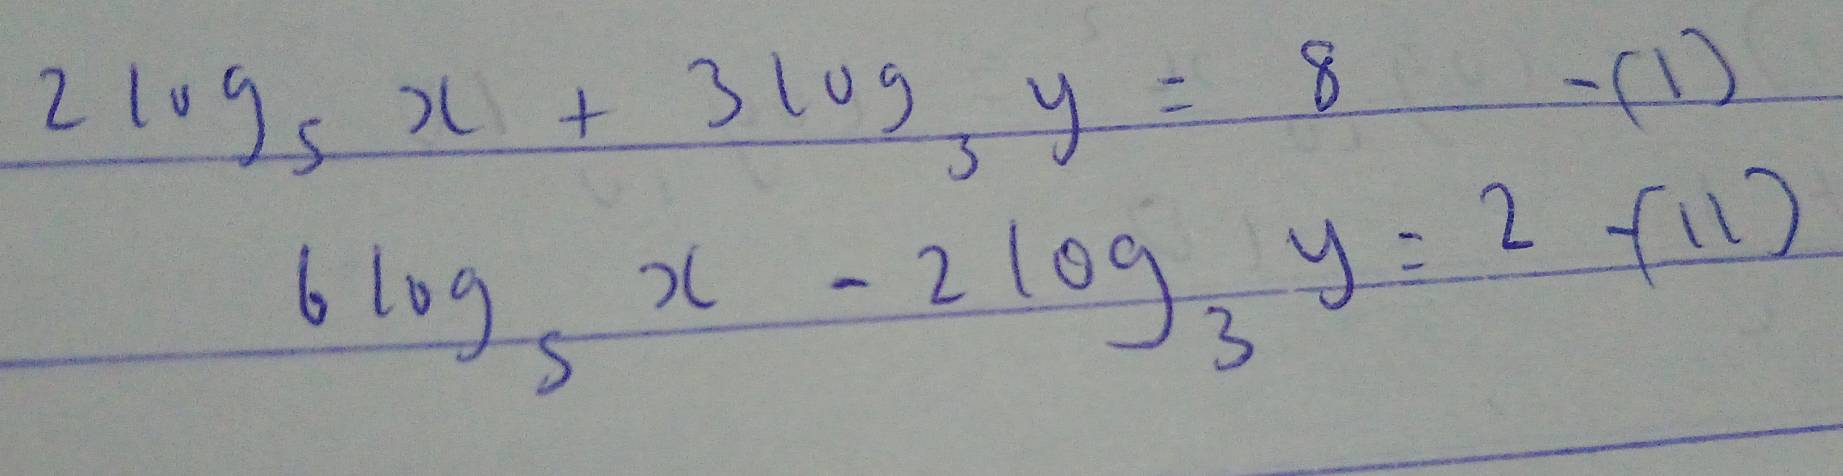 2 log₅ x + 3 log₃ y = 8 -(1)
6 log₅ x - 2 log₃ y = 2 -(11)